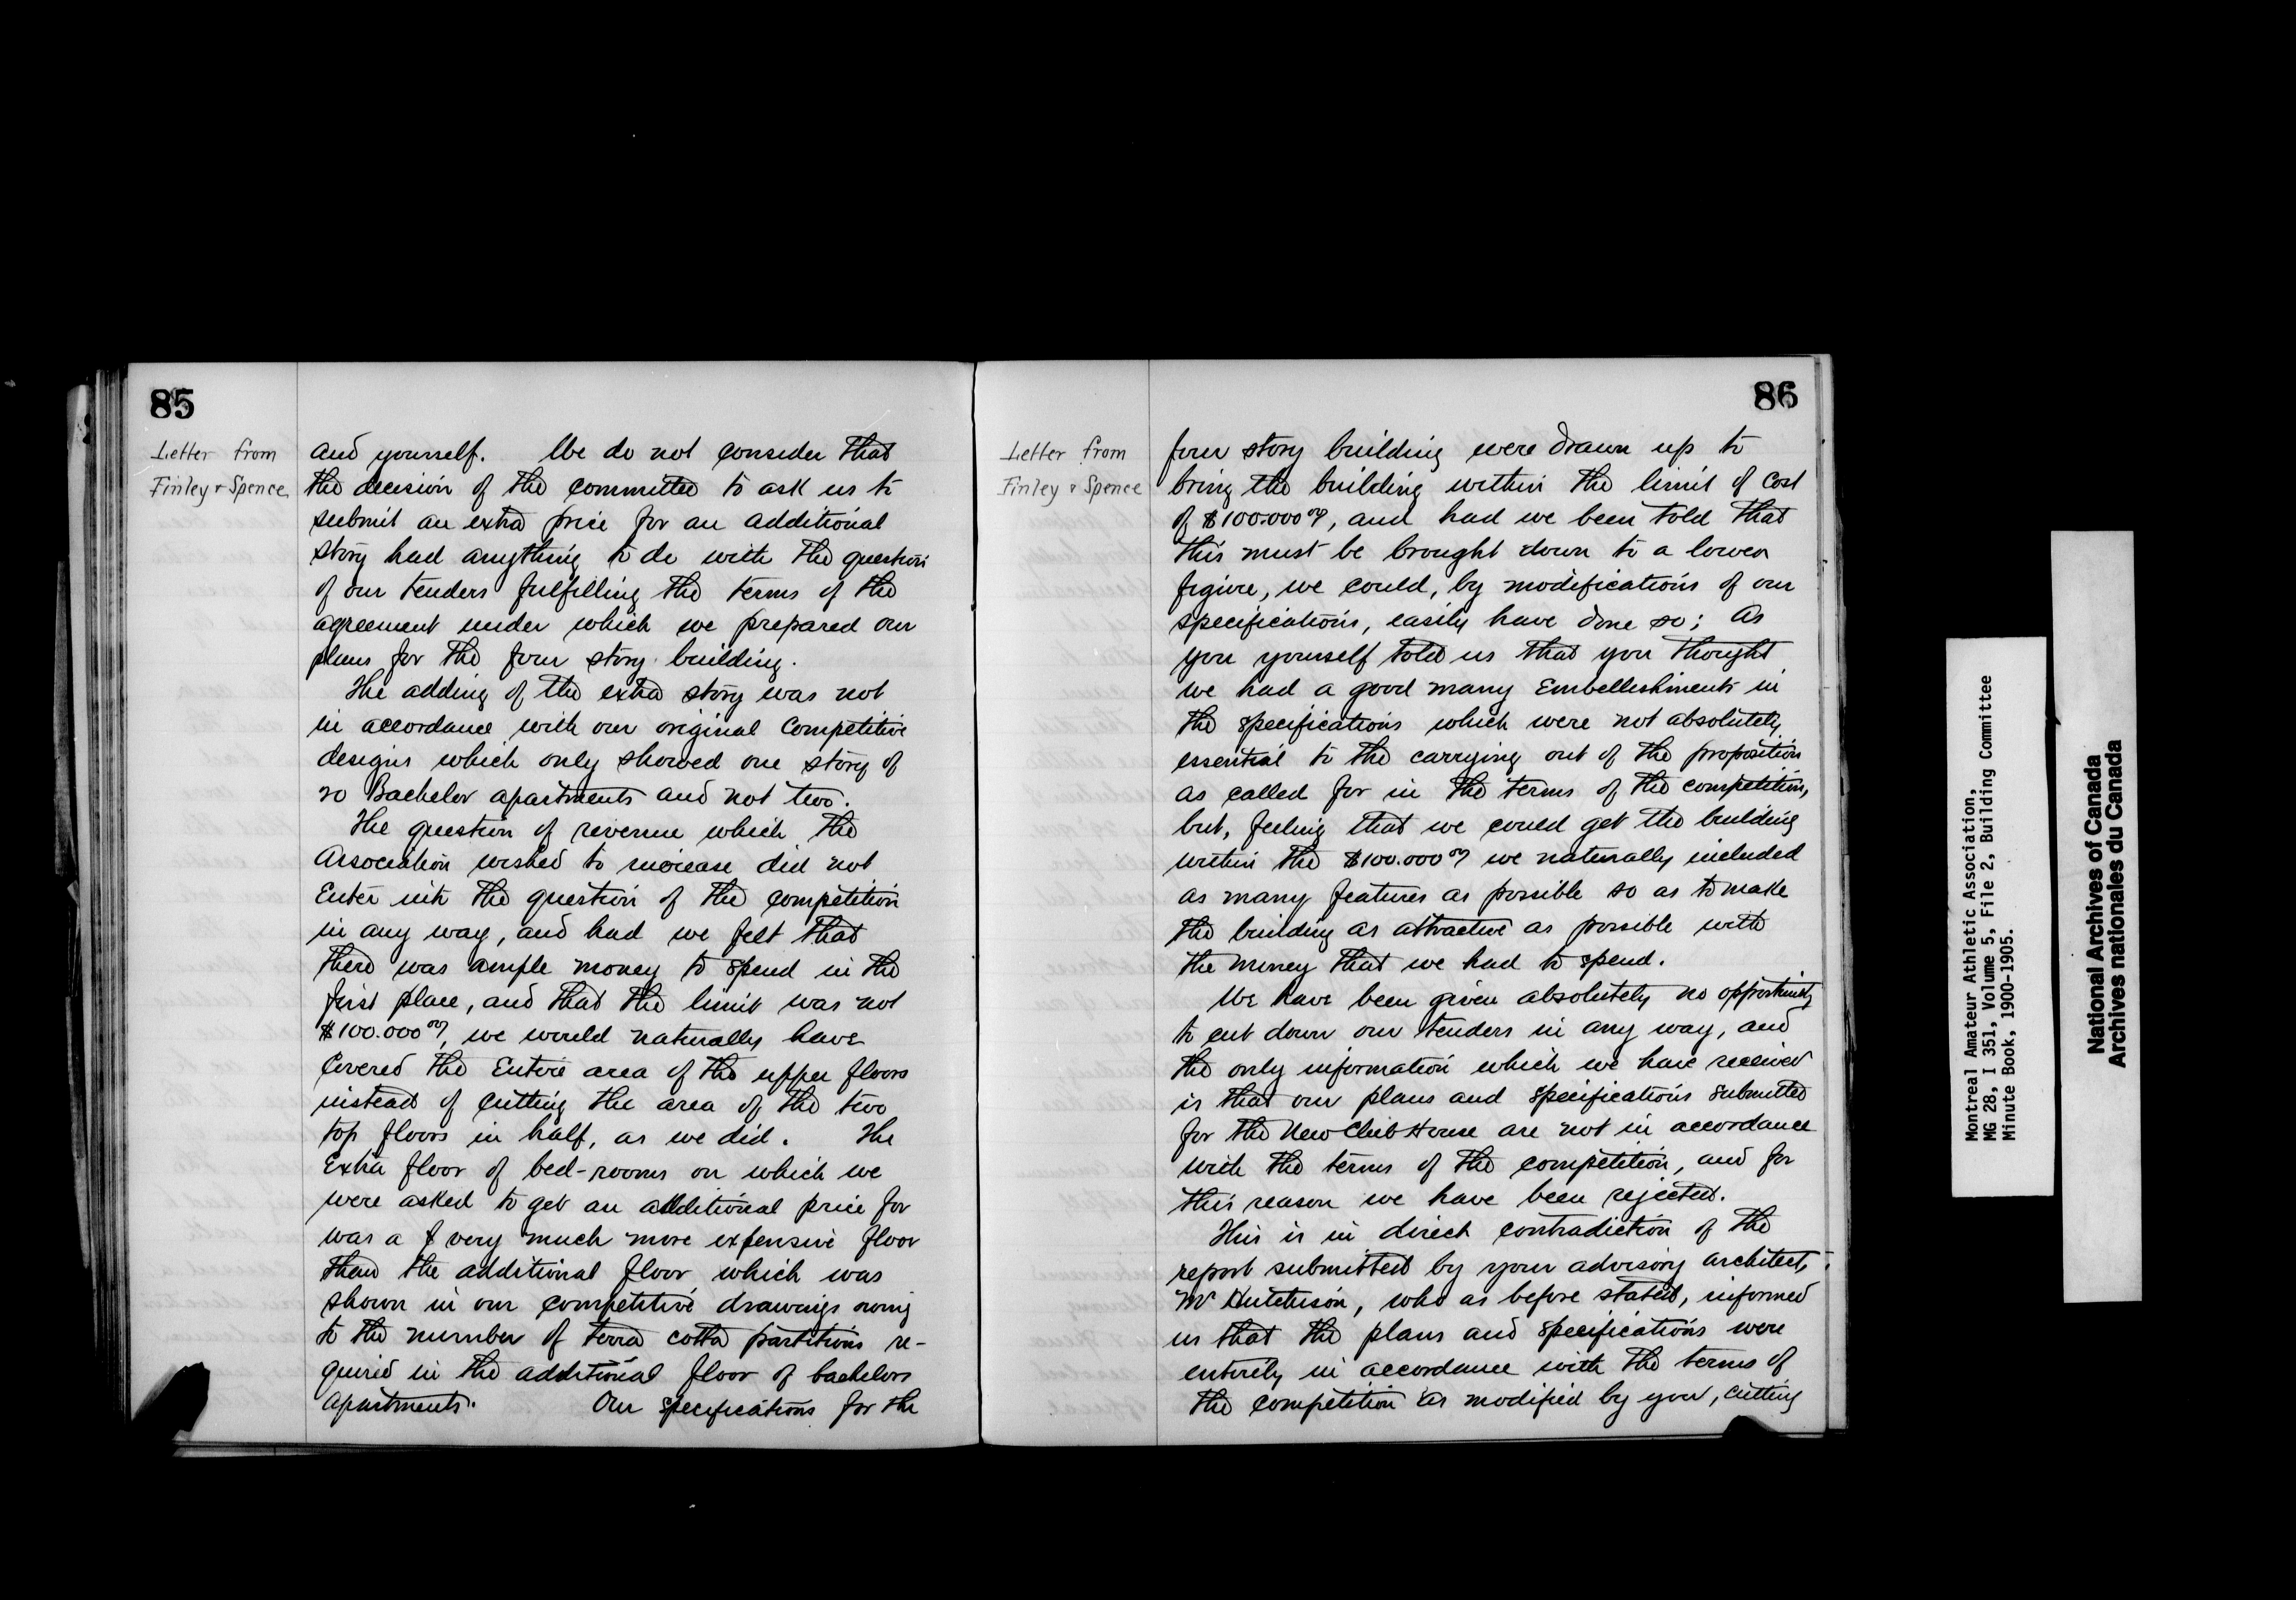 85
Letter from
Finley & Spence
and yourself. We do not consider that
the decision of the committee to ask us to
submit an extra price for an additional
story had anything to do with the question
of our tenders fulfilling the terms of the
agreement under which we prepared our
plans for the four story building.
The adding of the extra story was not
in accordance with our original Competitive
designs which only showed one story of
20 Bachelor apartments and not two.
The question of revenue which the
Association wished to increase did not
Enter into the question of the competition
in any way, and had we felt that
there was ample money to spend in the
first place, and that the limit was not
$100.000 00/, we would naturally have
Covered the Entire area of the upper floors
instead of Cutting the area of the two
top floors in half, as we did. The
Extra floor of bed-rooms on which we
were asked to get an additional price for
was a very much more expensive floor
than the additional floor which was
shown in our competitive drawings owing
to the number of terra cotta partitions re-
quired in the additional floor of bachelors
apartments. Our specifications for the
86
Letter from
Finley & Spence
four story building were drawn up to
bring the building within the limit of Cost
of $100.000 00/, and had we been told that
this must be brought down to a lower
figure, we could, by modifications of our
specifications, easily have done so; As
you yourself told us that you thought
we had a good many Embellishments in
the specifications which were not absolutely
essential to the carrying out of the proposition
as called for in the terms of the competition,
but, feeling that we could get the building
within the $100.000 00/ we naturally included
as many features as possible so as to make
the building as attractive as possible with
the money that we had to spend.
We have been given absolutely no opportunity
to cut down our tenders in any way, and
the only information which we have received
is that our plans and specifications submitted
for the New Club House are not in accordance
with the terms of the competition, and for
this reason we have been rejected.
This is in direct contradiction of the
report submitted by your advisory architect,
Mr Hutchison, who as before stated, informed
us that the plans and specifications were
entirely in accordance with the terms of
the competition as modified by you, cutting
Montreal Amateur Athletic Association,
MG 28, I 351, Volume 5, File 2, Building Committee
Minute Book, 1900-1905.
National Archives of Canada
Archives nationales du Canada